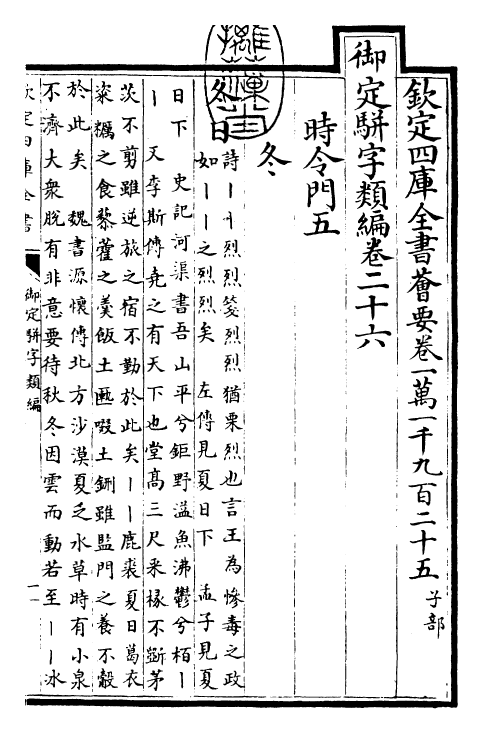 欽定四庫全書薈要卷一萬一千九百二十五 子部
御定駢字類編卷二十六
時令門五
冬
冬日
詩丨丨烈烈箋烈烈猶栗烈也言王為慘毒之政
如丨丨之烈烈矣 左傳見夏日下 孟子見夏
日下 史記河渠書吾山平兮鉅野溢魚沸鬱兮栢丨
丨 又李斯傳堯之有天下也堂高三尺采椽不斲茅
茨不剪雖逆旅之宿不勤於此矣丨丨鹿裘夏日葛衣
粢糲之食藜藿之羹飯土匭啜土鉶雖監門之養不觳
於此矣 魏書源懷傳北方沙漠夏乏水草時有小泉
不濟大衆脫有非意要待秋冬因雲而動若至丨丨冰
欽定四庫全書
御定駢字類編
一